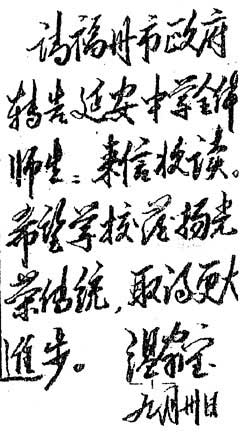 请福州市政府
转告延安中学全体
师生：来信收读。
希望学校发扬光
荣传统，取得更大
进步。 温家宝
九月卅日